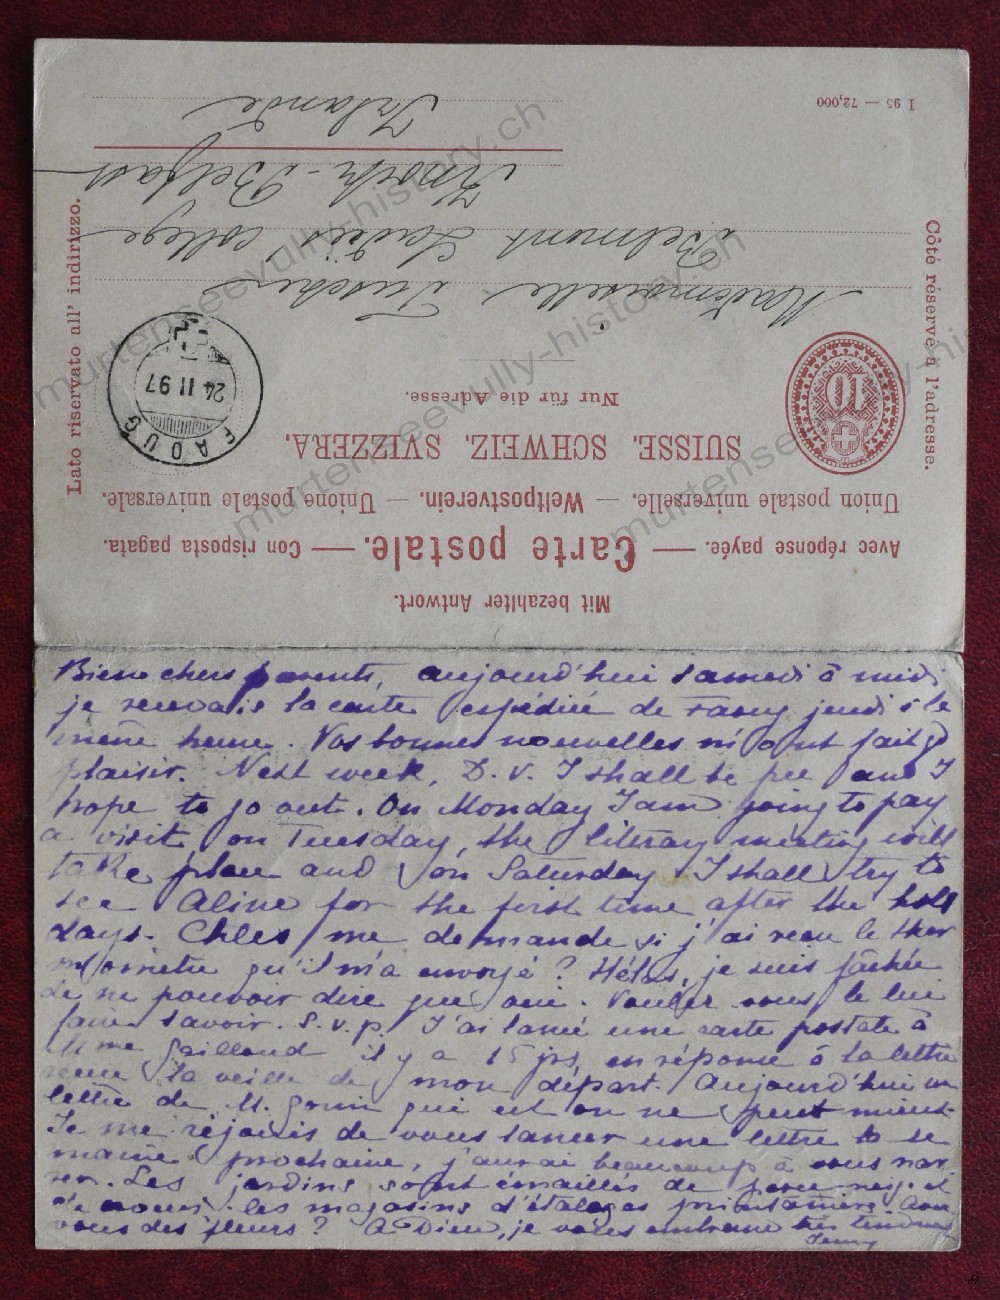 Mit bezahlter Antwort.
Avec réponse payée. — Carte postale. — Con risposta pagata.
Union postale universelle. — Weltpostverein. — Unione postale universale.
SUISSE. SCHWEIZ. SVIZZERA.
Nur für die Adresse.
Côté réservé à l'adresse.
Lato riservato all' indirizzo.
10
FAOUG
24 II 97
Mademoiselle
Belmont Ladies' College
Knock - Belfast
Irlande
I 95 — 72,000
Bien chers parents, aujourd'hui samedi à midi
je recevais la carte expédiée de Faoug jeudi à la
même heure. Vos bonnes nouvelles m'ont fait gd
plaisir. Next week, D.V. I shall be free and I
hope to go out. On Monday I am going to pay
a visit on Tuesday, the literary meeting will
take place and on Saturday I shall try to
see Aline for the first time after the holi
days. Chles me demande si j'ai reçu le ther
momètre qu'il m'a envoyé? Hélas, je suis fâchée
de ne pouvoir dire que oui. Voulez vous le lui
faire savoir. S.v.p. J'ai lancé une carte postale à
Mme Gaillaud il y a 15 jrs, en réponse à la lettre
reçue la veille de mon départ. Aujourd'hui un
lettre de M. qui est on ne peut mieux.
Je me réjouis de vous lancer une lettre la se
maine prochaine, j'aurai beaucoup à vous nar
rer. Les jardins sont émaillés de perce neige et
les magasins d'étalages printaniers. Avez
vous des fleurs? A Dieu, je vous embrasse très tendrement
Jenny
murtenseevully-history.ch
murtenseevully-history.ch
murtenseevully-history.ch
murtenseevully-history.ch